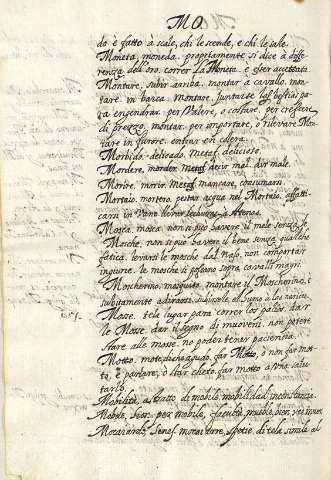 MO.
do è fatto à scale, chi le scende, e chi le sale.
Moneta, moneda. propriamente si dice à diffe=
renza dell'oro. correr La Moneta. è esser accettata.
Montare, subir arriba. montar à cavallo. mon=
tare in barca. montare. Juntarse las bestias pa
ra engendrar. per Valere, ò costare, per crescere
di prezzo. montar. per importare, ò rilevare. Mon
tare in furore. entrar en collera.
Morbido. delicado. metaf. delicioso.
Mordere, morder. metaf. decir mal. dir male.
Morire. morir. metaf. mancare, consumarsi.
Mortaio. mortero. pestar acqua nel Mortaio. affatti=
carsi in Vano. à Atenas.
Mosca. mosca. non si può havere il mele senza le
Mosche. non si può havere il bene senza qualche
fatica. levarsi le mosche dal naso. non comportar
ingiurie. le mosche si posano sopra cavalli magri.
Moscherino. mosquito. montare il Moscherino. è
subitamente adirarsi. subirsele el humo à las narices.
Mosse. tela lugar para correr los palios. dar
le Mosse. dar il segno di muoversi. non potere
stare alle mosse. no poder tener paciencia.
Motto. mote, dicho agudo. far Motto, ò non far mot=
to, è parlare, ò star cheto. far motto à uno. salu=
tarlo.
Mobilità, astratto di mobile. mobilidad, inconstancia.
Mobile, bien. per mobile, facultà. mueble, bien,
Mocaiardo, spetie di tela simile al